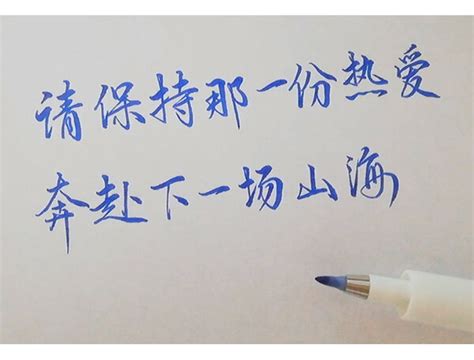 请保持那一份热爱
奔赴下一场山海